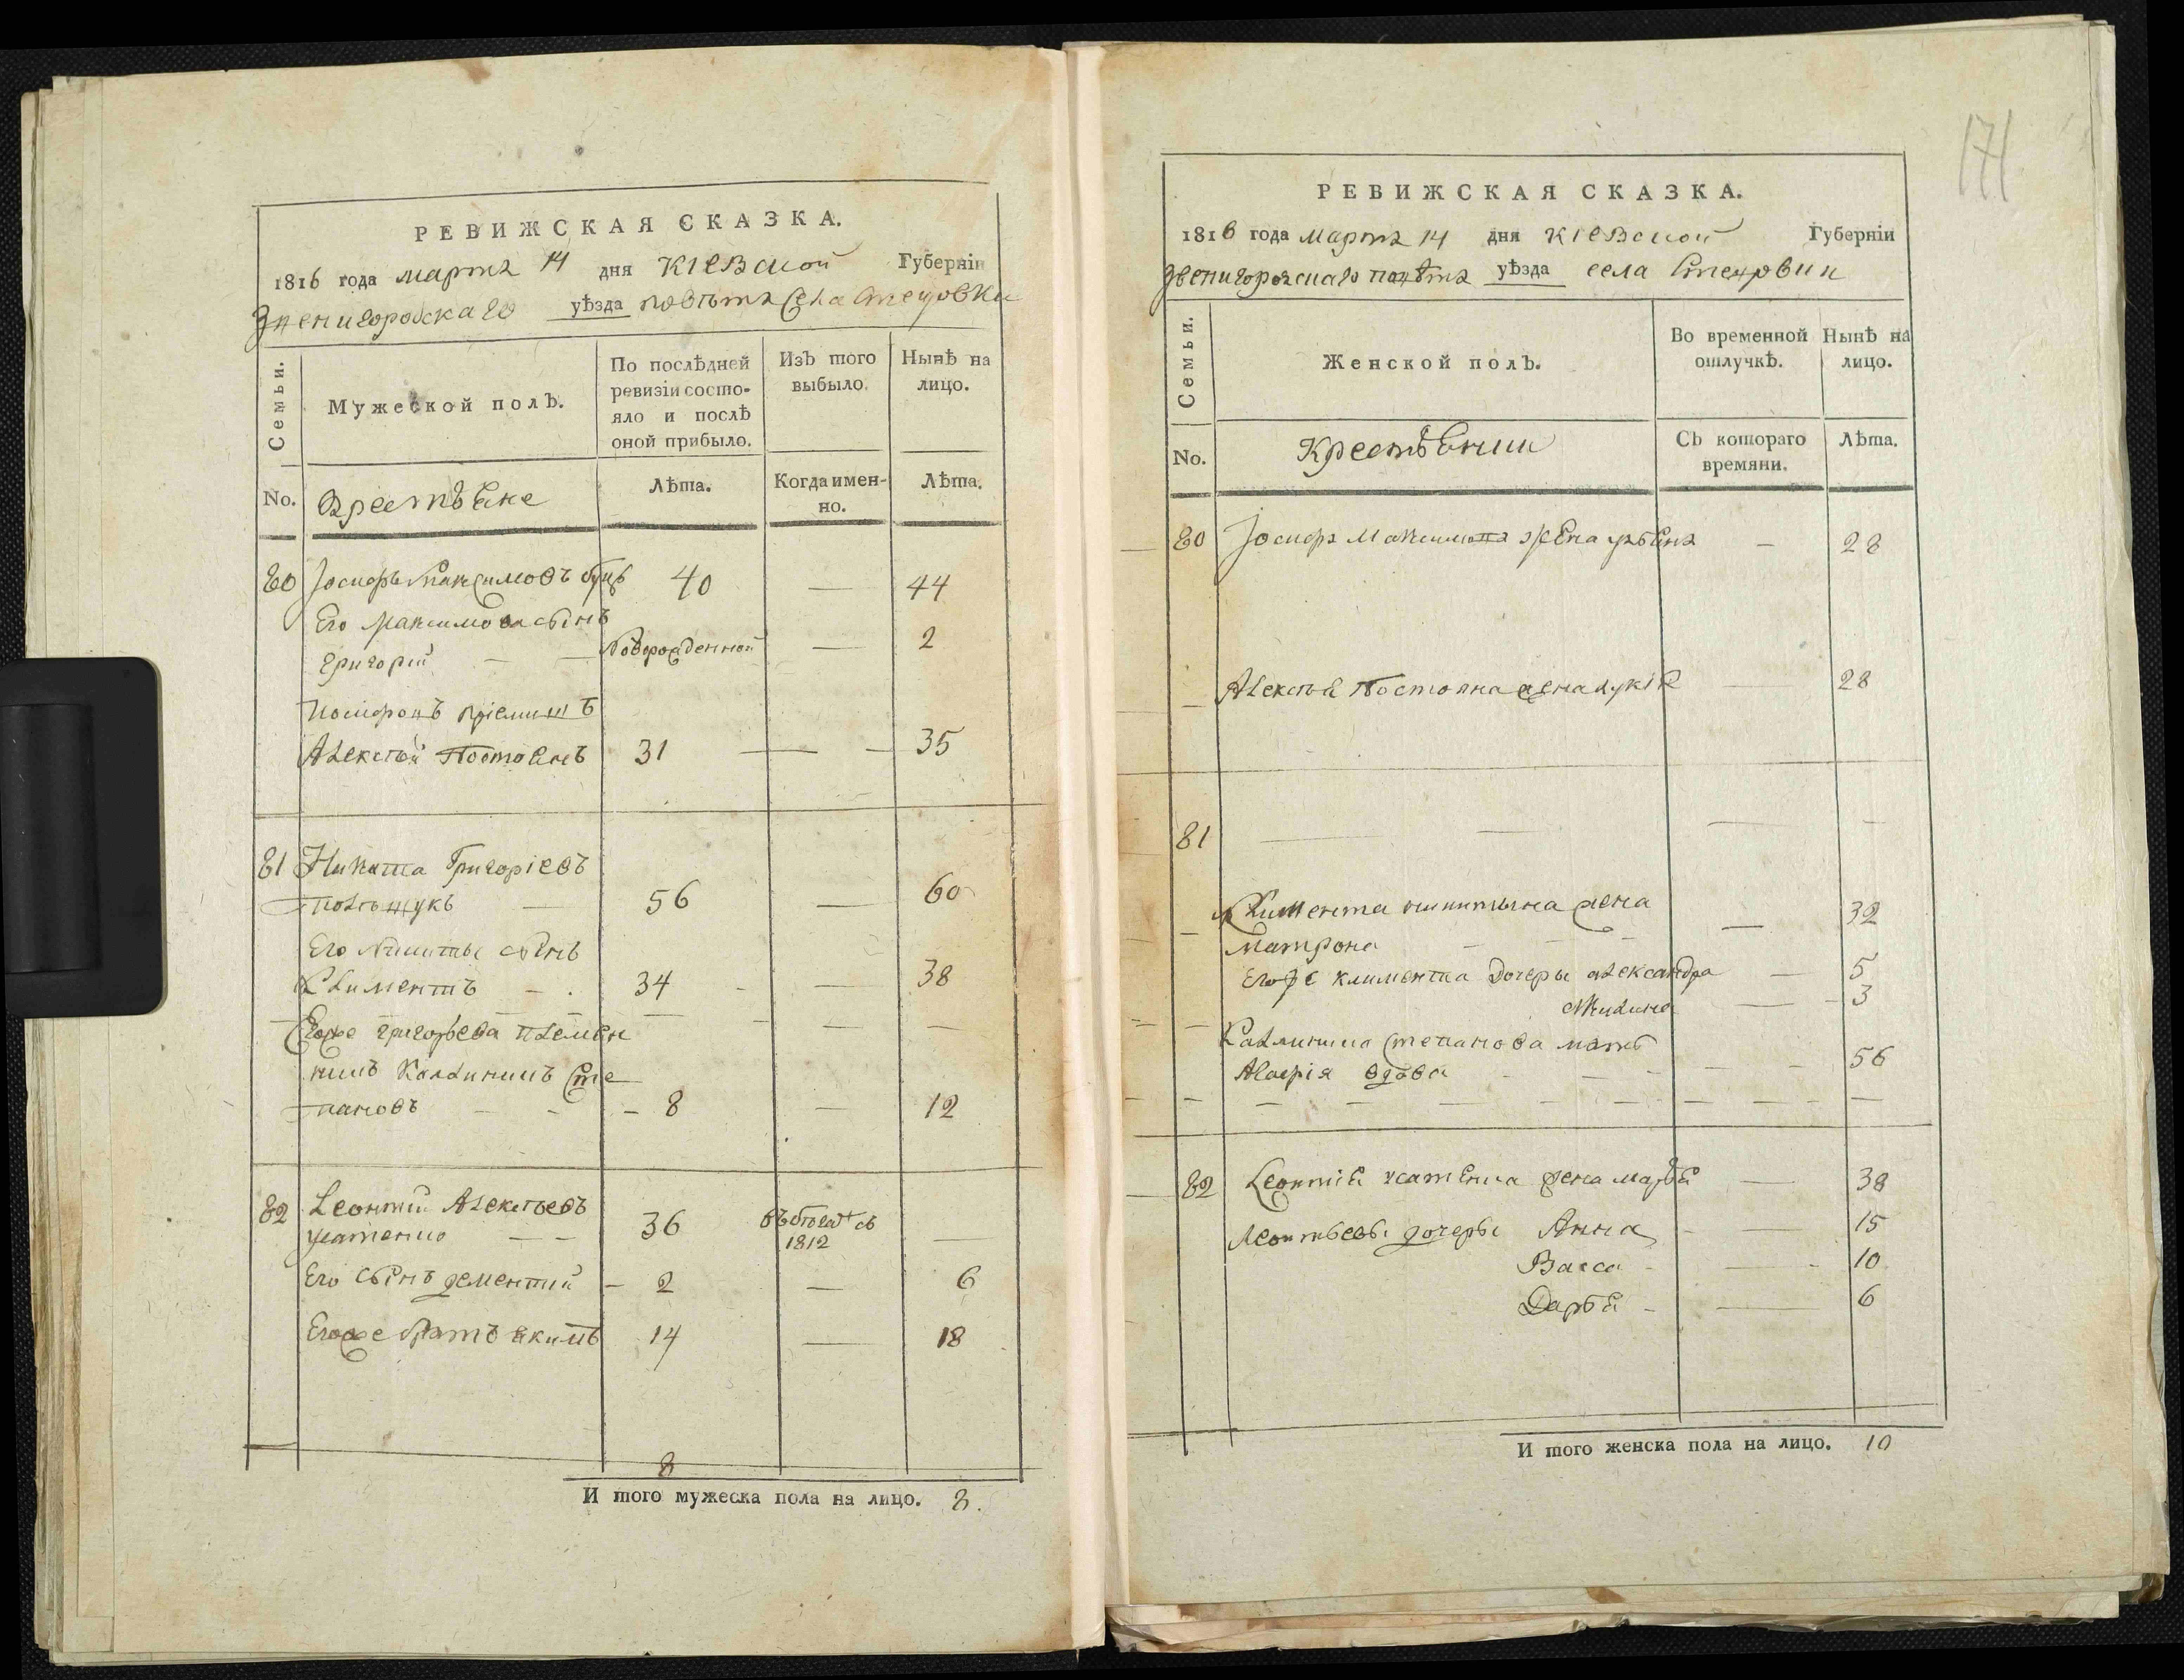 РЕВИЖСКАЯ СКАЗКА.
1816 года марта 14 дня Кіевской Губерніи
Звенигородскаго уѣзда повѣта Села Стецовки
Семьи.
Мужеской полъ.
По послѣдней ревизіи состояло и послѣ оной прибыло.
Изъ того выбыло.
Нынѣ на лицо.
No.
Крестьяне
Лѣта.
Когда именно.
Лѣта.
80 Іосифъ Максимовъ 40 — 44
Его Максимова сынъ
Григорій — — Новорожденной — 2
Іосифовъ пріемишъ
Алексѣй Постоянъ 31 — — 35
81 Никита Григоріевъ
Полѣщукъ — 56 — 60
Его Никиты сынъ
Климентъ — . 34 - — 38
Егоже Григорьева племян
никъ Калиникъ Сте
пановъ — - - 8 — 12
82 Леонтій Алексѣевъ
36 1812 —
Его сынъ Дементій — 2 — 6
Егоже братъ Якимъ 14 — 18
8
И того мужеска пола на лицо. 8.
171
РЕВИЖСКАЯ СКАЗКА.
1816 года марта 14 дня Кіевской Губерніи
Звенигородскаго повѣта уѣзда села Стецовки
Семьи.
Женской полъ.
Во временной отлучкѣ.
Нынѣ на лицо.
No.
Крестьянки
Съ котораго времяни.
Лѣта.
80 Іосифа Максимова жена Ульяна — 28
Алексѣя Постояна жена Лукія — 28
81 — — — —
Климента Никитына жена
Матрона — — 32
Егоже Климента дочеры Александра — 5
Акилина — 3
Калиника Степанова мать
Агафія вдова - — - 56
82 Леонтія жена Марья — 38
Леонтьевы дочеры Анна - — 15
Васса - — 10
Дарья - — 6
И того женска пола на лицо. 10